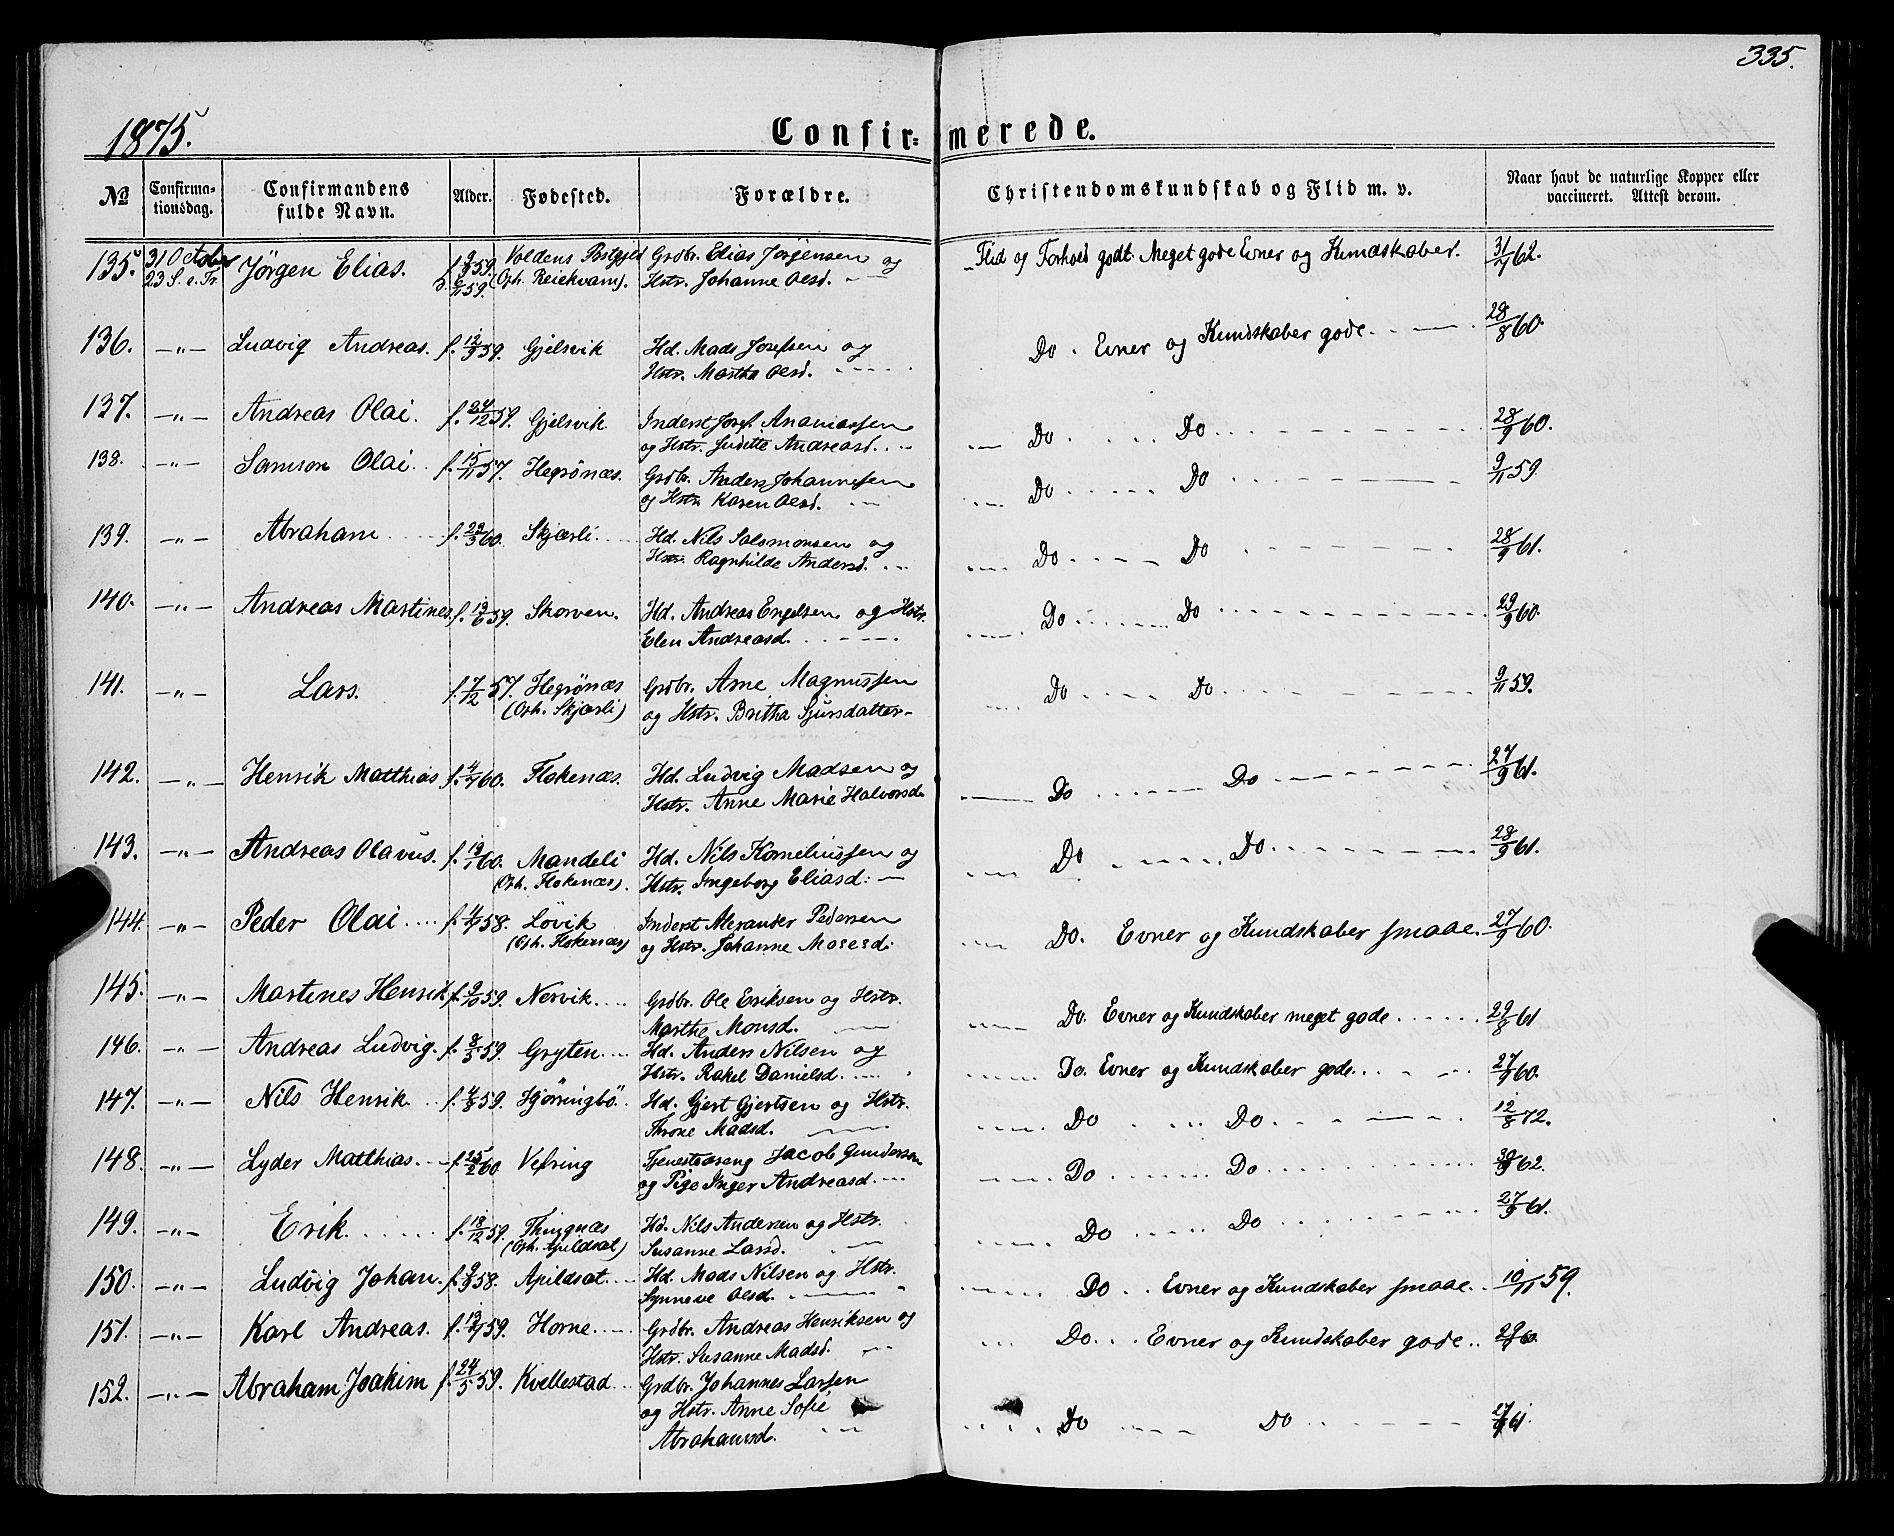 335.
1875.
Confir= merede.
No Confirma-tionsdag. Confirmandens fulde Navn. Alder. Fødested. Forældre. Christendomskundskab og Flid m. v. Naar havt de naturlige Kopper eller vaccineret. Attest derom.
135. 31 October Jørgen Elias. 59. Voldens Præstgjeld Grdbr. Elias Jørgensen og Flid og Forhold godt. Meget gode Evner og Kundskaber. 31/7 62.
23 S. e. Tr. d. 6/11 59. (Oph. Reiekvam). Hstr. Johanne Olsd.
136. —"— Ludvig Andreas. f. 12/9 59. Gjelsvik Hd. Mads Josefsen og Do. Evner og Kundskaber gode. 28/8 60.
Hstr. Martha Olsd.
137. —"— Andreas Olai. f. 24/12 59. Gjelsvik Inderst Josef Ananiassen Do Do 28/9 60.
og Hstr. Judithe Andreasd.
138. —"— Samson Olai f. 15/11 57. Hegrönæs. Grdbr. Anders Johannesen Do Do 9/11 59
og Hstr. Karen Olsd.
139. —"— Abraham f. 29/3 60. Skjærli Hd. Nils Salomonsen og Do Do 28/9 61.
Hstr. Ragnhilde Andersd.
140. —"— Andreas Martines f. 13/6 59. Skorven. Hd. Andreas Engelsen og Hstr. Do Do 29/9 60.
Elen Andreasd.
141. —"— Lars. f. 7/12 57. Hegrönæs Grdbr. Arne Magnussen Do Do 9/11 59.
(Oph. Skjærli) og Hstr. Britha Sjursdatter
142. —"— Henrik Matthias f. 4/7 60. Flokenæs. Hd. Ludvig Madsen og Do Do 27/9 61.
Hstr. Anne Marie Halvorsd.
143. —"— Andreas Olavus. f. 19/1 60. Mandeli Hd. Nils Korneliussen og Do Do 28/9 61.
(Oph. Flokenæs). Hstr. Ingeborg Eliasd.
144. —"— Peder Olai f. 4/7 58. Lövik Inderst Alexander Pedersen Do. Evner og Kundskaber smaae. 27/9 60.
(Oph. Flokenæs) og Hstr. Johanne Mosesd.
145. —"— Martines Henrik f. 9/10 59. Nervik Grdbr. Ole Eriksen og Hstr. Do. Evner og Kundskaber meget gode 29/8 61
Marthe Monsd.
146. —"— Andreas Ludvig. f. 8/5 59. Gryten Hd. Anders Nilsen og Do. Evner og Kundskaber gode 27/9 60.
Hstr. Rakel Danielsd.
147. —"— Nils Henrik f. 4/8 59. Hjörringbö. Hd. Gjert Gjertsen og Hstr. Do Do 12/8 72.
Throne Madsd.
148. —"— Lyder Matthias f. 25/2 60. Vefring Tjenestdreng Jacob Gundersen Do Do 62.
og Pige Inger Andreasd.
149. —"— Erik f. 18/12 59. Thingnæs Hd. Nils Andersen og Hstr. Do Do 27/9 61.
(Oph. Apildsæt) Susanne Larsd.
150. —"— Ludvig Johan. f. 9/9 58. Apildsæt Hd. Mads Nilsen og Hstr. Do Evner og Kundskaber smaae 10/11 59.
Synneve Olsd.
151. —"— Karl Andreas. f. 59. Horne Grdbr. Andreas Henriksen og Do Evner og Kundskaber gode 60.
Hstr. Susanne Madsd.
152. —"— Abraham Joakim f. 24/5 59. Kvellestad Grdbr. Johannes Larsen
og Hstr. Anne Sofie Do Do 61.
Abrahamsd.